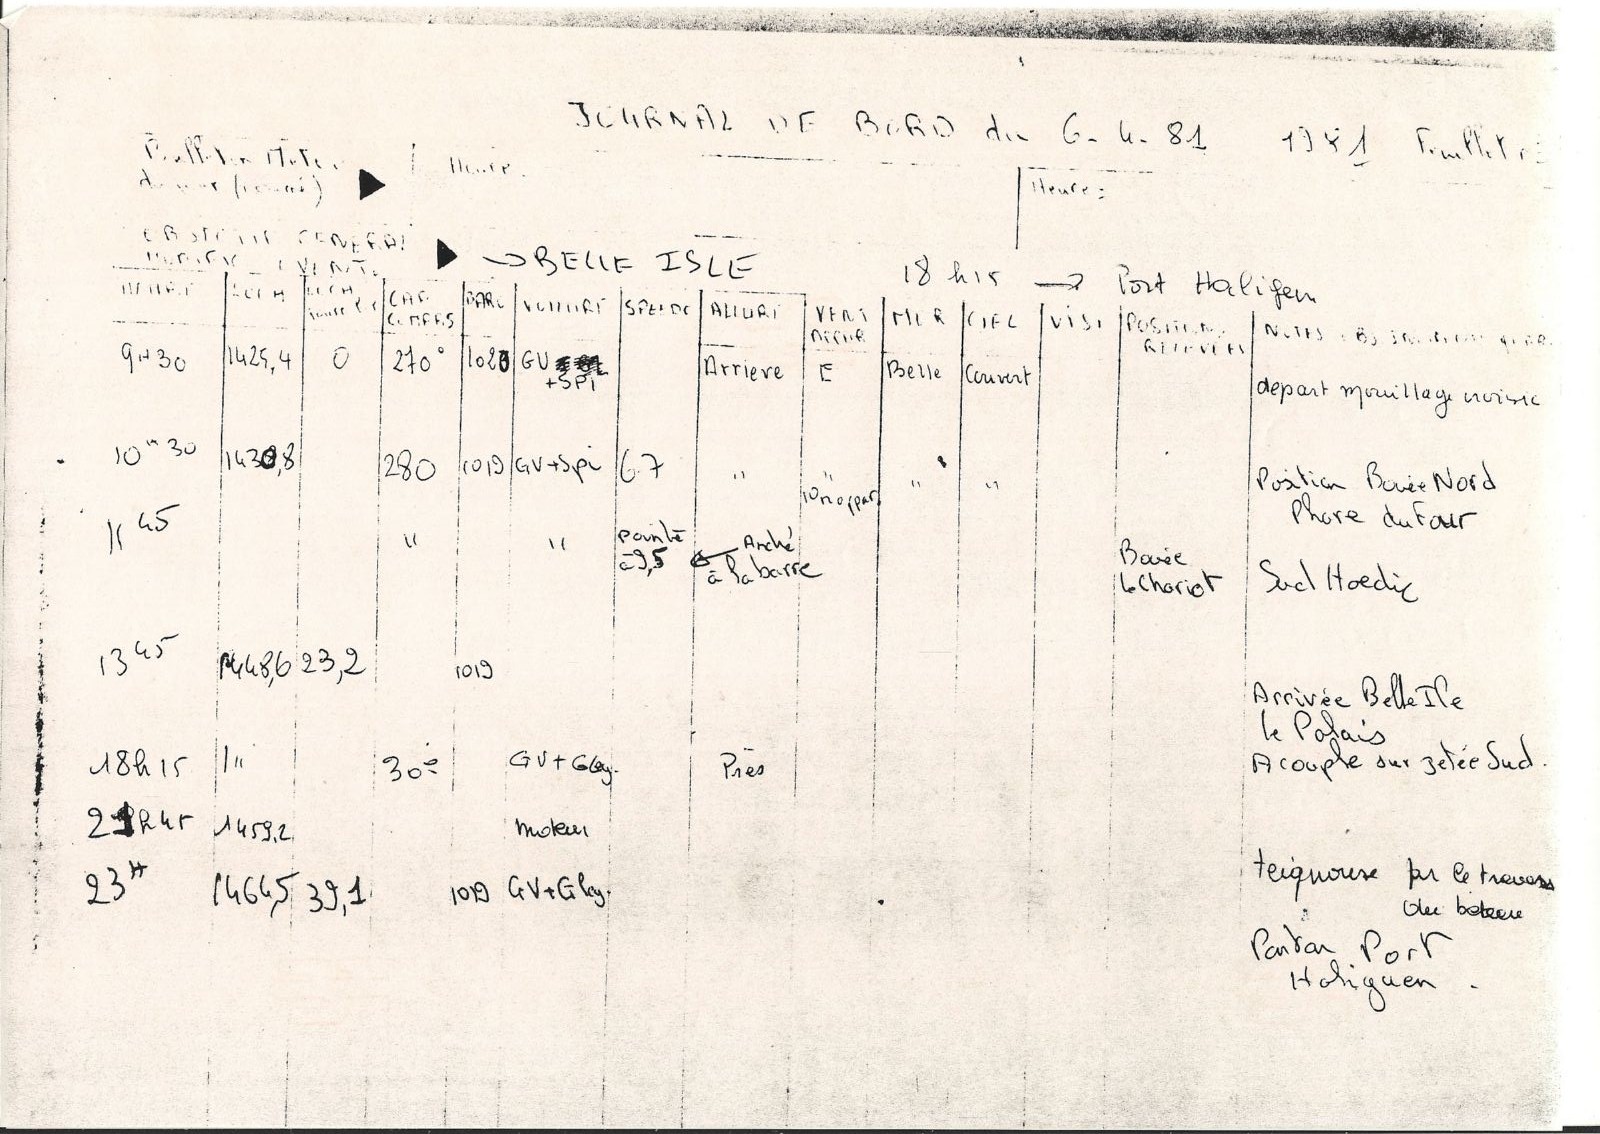 JOURNAL DE BORD du 6.4.81 1981 Feuillet
Heure.
Heure :
→ BELLE ISLE 18h15 → Port Haligen
HEURE LOCH LOCH CAP COMPAS BARO VOILURE SPEEDO ALLURE VENT MER CIEL VISI POSITION RELEVEES NOTES
9H30 1425,4 0 270° 1020 GV +SPI Arriere E Belle Couvert
depart mouillage
10H30 1430,8 280 1019 GV+Spi 6.7 " " " "
Position Bouée Nord
Phare du Four
11 45 " " pointe à 9,5 ← André à la barre Bouée le Chariot Sud Hoedic
13 45 1448,6 23,2 1019
Arrivée Belle Ile
le Palais
18h15 " 30° GV+G Près A couple sur Jetée Sud.
21h45 1459,2 moteur
23H 14645 39,1 1019 GV+G
teignouse par le travers
du bateau
Port
Haliguen.